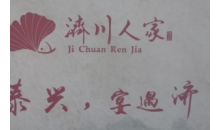 濟川人家
Ji Chuan Ren Jia
泰兴，宴遇济